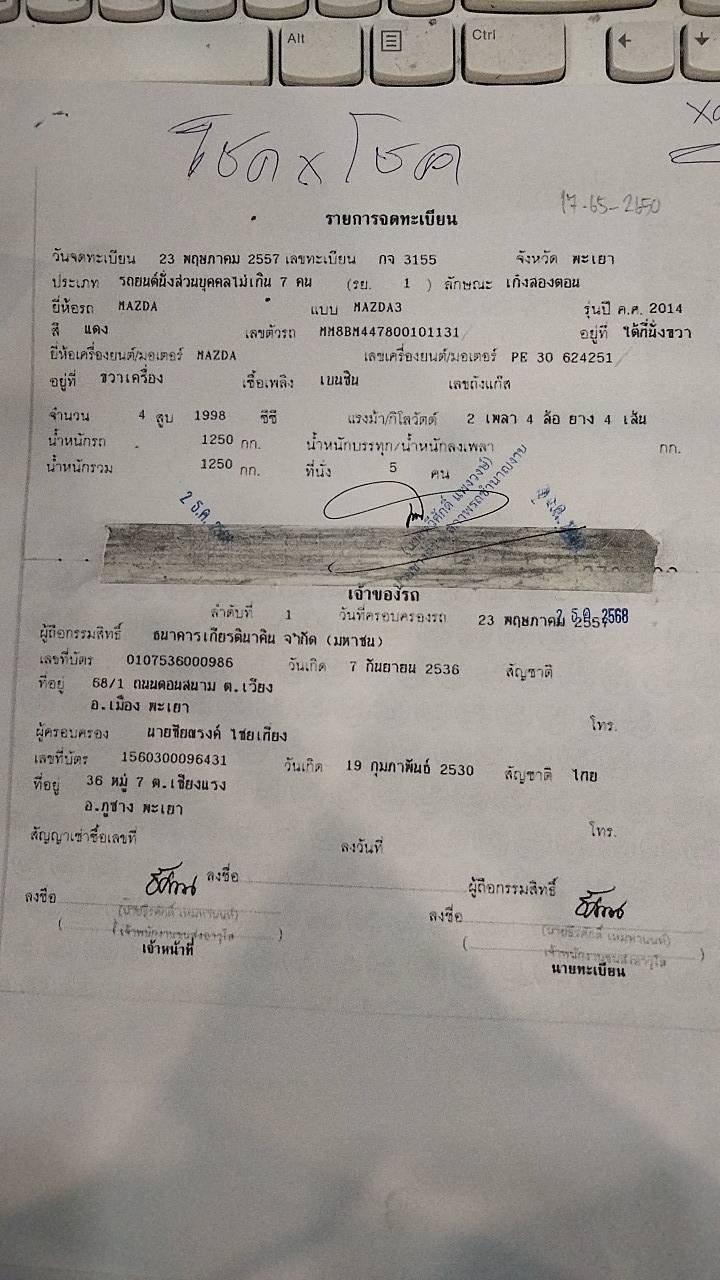 Alt
Ctrl
โชค x โชค
17-65-2650
รายการจดทะเบียน
วันจดทะเบียน 23 พฤษภาคม 2557 เลขทะเบียน กจ 3155 จังหวัด พะเยา
ประเภท รถยนต์นั่งส่วนบุคคลไม่เกิน 7 คน (รย. 1 ) ลักษณะ เก๋งสองตอน
ยี่ห้อรถ MAZDA แบบ MAZDA3 รุ่นปี ค.ศ. 2014
สี แดง เลขตัวรถ MM8BM447800101131 อยู่ที่ ใต้ที่นั่งขวา
ยี่ห้อเครื่องยนต์/มอเตอร์ MAZDA เลขเครื่องยนต์/มอเตอร์ PE 30 624251
อยู่ที่ ขวาเครื่อง เชื้อเพลิง เบนซิน เลขถังแก๊ส
จำนวน 4 สูบ 1998 ซีซี แรงม้า/กิโลวัตต์ 2 เพลา 4 ล้อ ยาง 4 เส้น
น้ำหนักรถ 1250 กก. น้ำหนักบรรทุก/น้ำหนักลงเพลา กก.
น้ำหนักรวม 1250 กก. ที่นั่ง 5 คน
2 ธ.ค.
เจ้าของรถ
ลำดับที่ 1 วันที่ครอบครองรถ 23 พฤษภาคม 2557
2 ธ.ค. 2568
ผู้ถือกรรมสิทธิ์ ธนาคารเกียรตินาคิน จำกัด (มหาชน)
เลขที่บัตร 0107536000986 วันเกิด 7 กันยายน 2536 สัญชาติ
ที่อยู่ 68/1 ถนนดอนสนาม ต.เวียง
อ.เมือง พะเยา
โทร.
ผู้ครอบครอง นายชัยณรงค์ ไชยเกียง
เลขที่บัตร 1560300096431 วันเกิด 19 กุมภาพันธ์ 2530 สัญชาติ ไทย
ที่อยู่ 36 หมู่ 7 ต.เชียงแรง
อ.ภูซาง พะเยา
สัญญาเช่าซื้อเลขที่ ลงวันที่ โทร.
ลงชื่อ ผู้ถือกรรมสิทธิ์
ลงชื่อ ลงชื่อ
เจ้าหน้าที่ นายทะเบียน